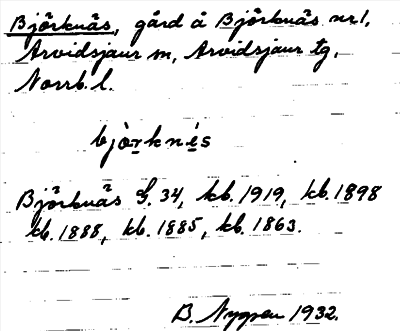 Björknäs, gård å Björknäs nr 1,
Arvidsjaur sn, Arvidsjaur tg,
Norrb. l.
bjòrknés
Björknäs S. 34, kb. 1919, kb. 1898
kb. 1888, kb. 1885, kb. 1863.
B. Nygren 1932.